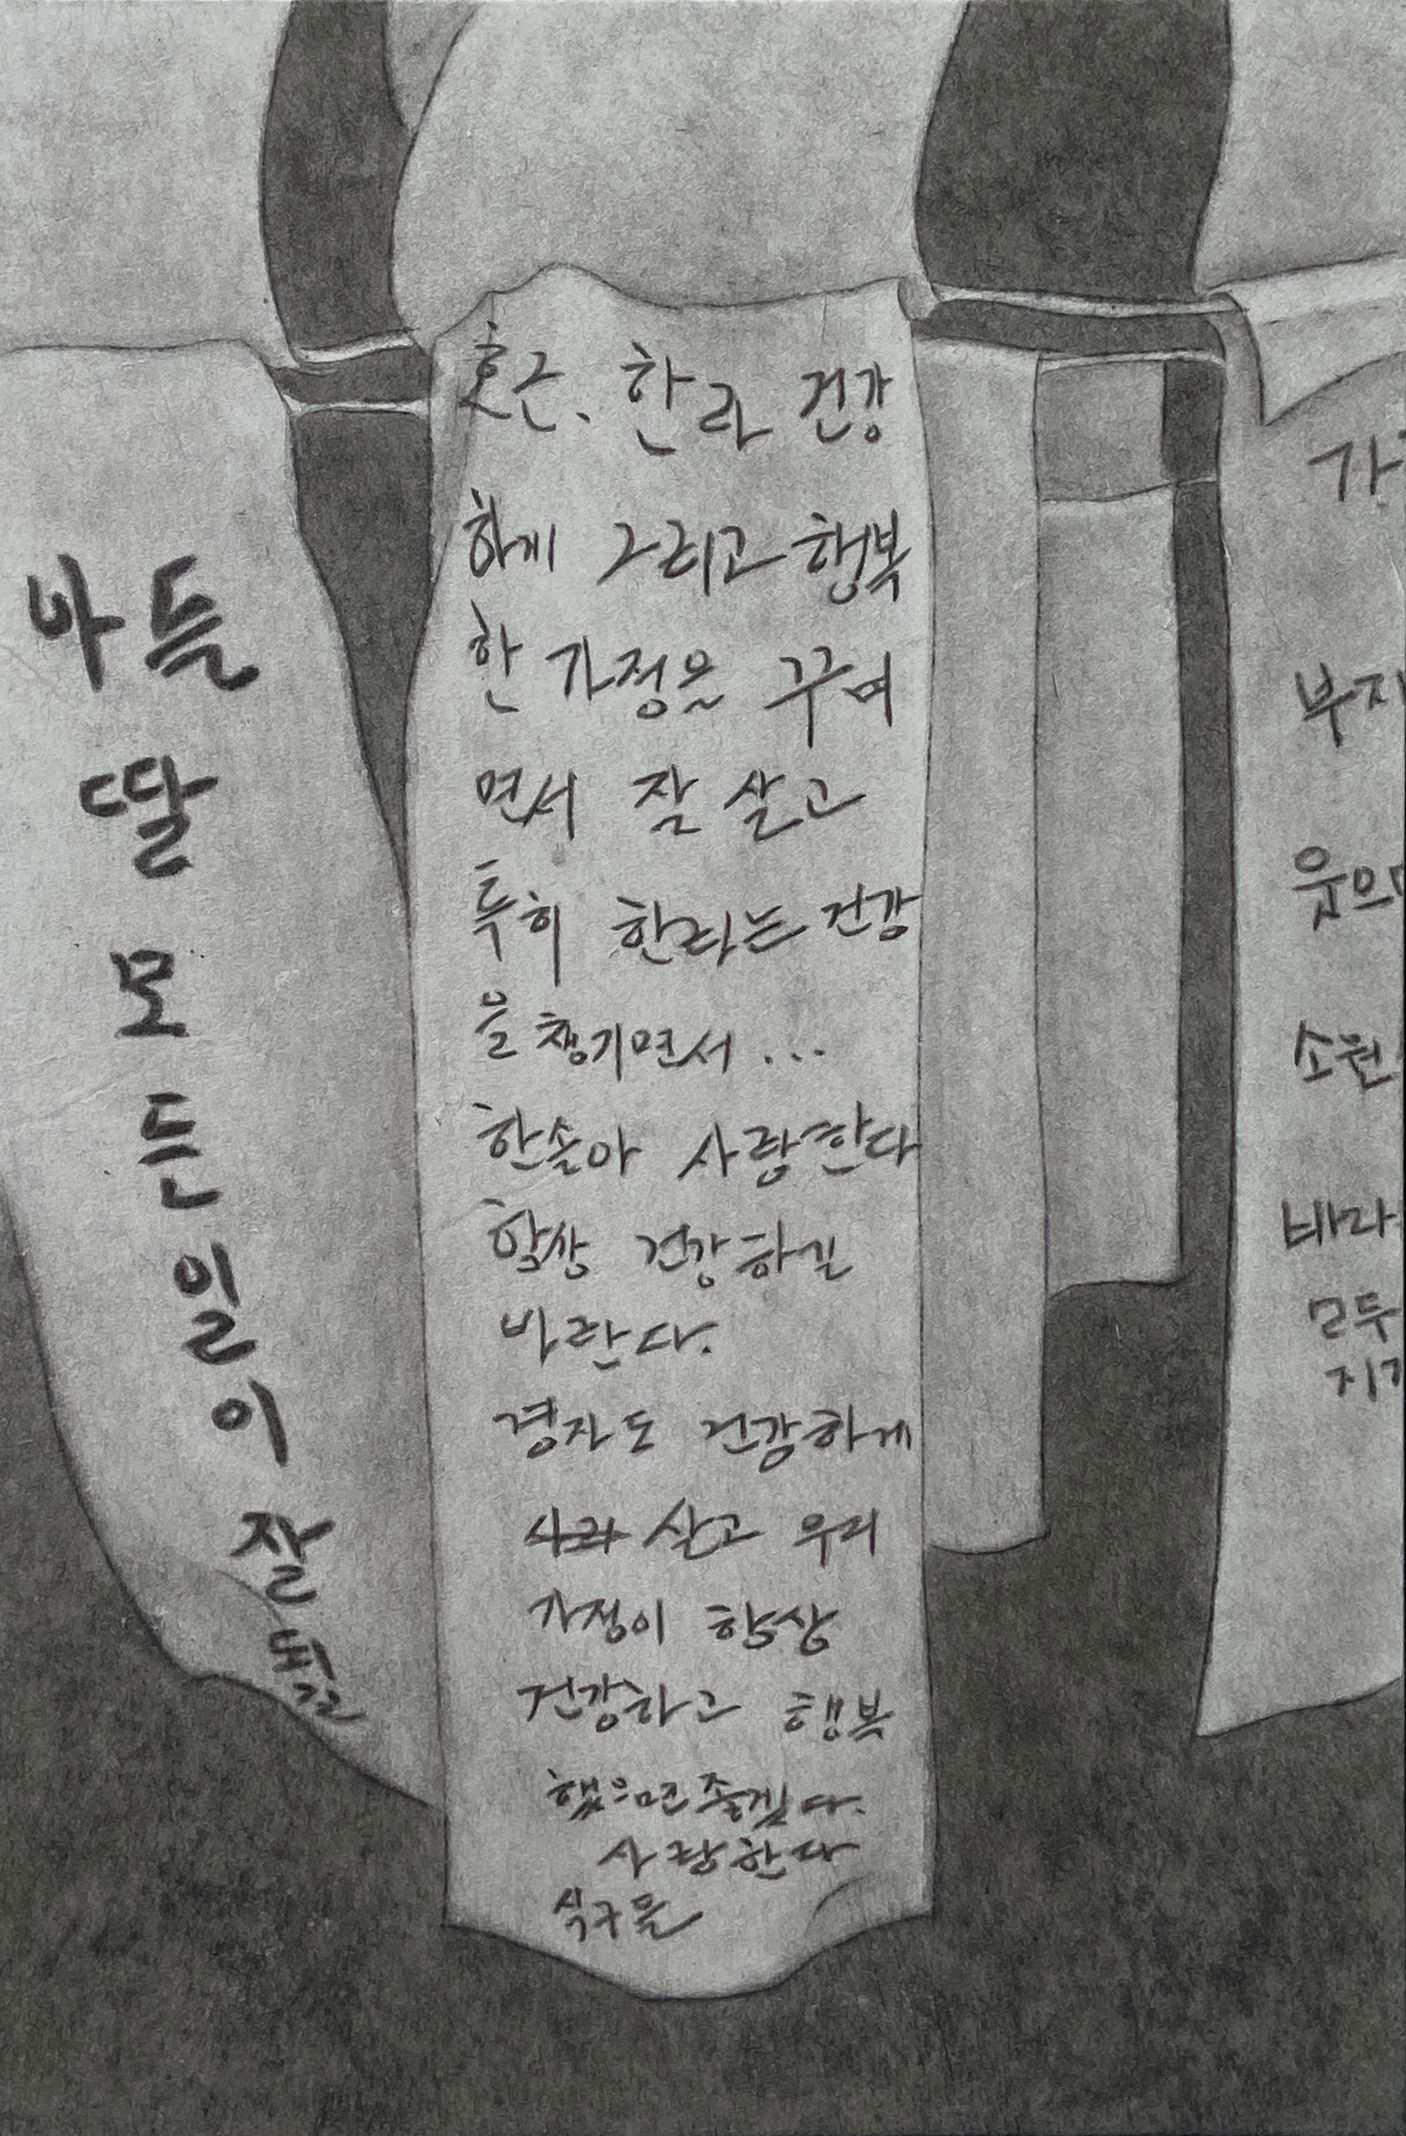 아들
딸
모
든
일
이
잘
되길
호근、한라 건강
하게 그리고 행복
한 가정을 꾸며
면서 잘 살고
특히 한라는 건강
을 챙기면서 ...
한솔아 사랑한다
항상 건강하길
바란다.
경자도 건강하게
사라 살고 우리
가정이 항상
건강하고 행복
했으면 좋겠다.
사랑한다
식구들
가
부자
웁으
소원
바라
모두
지